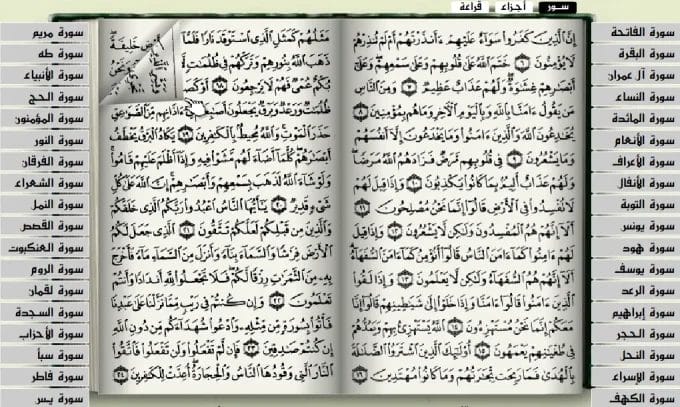 سور أجزاء قراءة
سورة الفاتحة
سورة البقرة
سورة آل عمران
سورة النساء
سورة المائدة
سورة الأنعام
سورة الأعراف
سورة الأنفال
سورة التوبة
سورة يونس
سورة هود
سورة يوسف
سورة الرعد
سورة إبراهيم
سورة الحجر
سورة النحل
سورة الإسراء
سورة الكهف
إِنَّ الَّذِينَ كَفَرُوا سَوَاءٌ عَلَيْهِمْ ءَأَنذَرْتَهُمْ أَمْ لَمْ تُنذِرْهُمْ
لَا يُؤْمِنُونَ ٦ خَتَمَ اللَّهُ عَلَىٰ قُلُوبِهِمْ وَعَلَىٰ سَمْعِهِمْ وَعَلَىٰ
أَبْصَٰرِهِمْ غِشَٰوَةٌ وَلَهُمْ عَذَابٌ عَظِيمٌ ٧ وَمِنَ النَّاسِ
مَن يَقُولُ ءَامَنَّا بِاللَّهِ وَبِالْيَوْمِ الْآخِرِ وَمَا هُم بِمُؤْمِنِينَ ٨
يُخَٰدِعُونَ اللَّهَ وَالَّذِينَ ءَامَنُوا وَمَا يَخْدَعُونَ إِلَّا أَنفُسَهُمْ
وَمَا يَشْعُرُونَ ٩ فِي قُلُوبِهِم مَّرَضٌ فَزَادَهُمُ اللَّهُ مَرَضًا
وَلَهُمْ عَذَابٌ أَلِيمٌ بِمَا كَانُوا يَكْذِبُونَ ١٠ وَإِذَا قِيلَ لَهُمْ
لَا تُفْسِدُوا فِي الْأَرْضِ قَالُوا إِنَّمَا نَحْنُ مُصْلِحُونَ ١١
أَلَا إِنَّهُمْ هُمُ الْمُفْسِدُونَ وَلَٰكِن لَّا يَشْعُرُونَ ١٢ وَإِذَا قِيلَ
لَهُمْ ءَامِنُوا كَمَا ءَامَنَ النَّاسُ قَالُوا أَنُؤْمِنُ كَمَا ءَامَنَ السُّفَهَاءُ
أَلَا إِنَّهُمْ هُمُ السُّفَهَاءُ وَلَٰكِن لَّا يَعْلَمُونَ ١٣ وَإِذَا لَقُوا
الَّذِينَ ءَامَنُوا قَالُوا ءَامَنَّا وَإِذَا خَلَوْا إِلَىٰ شَيَٰطِينِهِمْ قَالُوا إِنَّا
مَعَكُمْ إِنَّمَا نَحْنُ مُسْتَهْزِءُونَ ١٤ اللَّهُ يَسْتَهْزِئُ بِهِمْ وَيَمُدُّهُمْ
فِي طُغْيَٰنِهِمْ يَعْمَهُونَ ١٥ أُولَٰئِكَ الَّذِينَ اشْتَرَوُا الضَّلَٰلَةَ
بِالْهُدَىٰ فَمَا رَبِحَت تِّجَٰرَتُهُمْ وَمَا كَانُوا مُهْتَدِينَ ١٦
مَثَلُهُمْ كَمَثَلِ الَّذِي اسْتَوْقَدَ نَارًا فَلَمَّا
ذَهَبَ اللَّهُ بِنُورِهِمْ وَتَرَكَهُمْ فِي ظُلُمَٰتٍ
بُكْمٌ عُمْيٌ فَهُمْ لَا يَرْجِعُونَ ١٨
ظُلُمَٰتٌ وَرَعْدٌ وَبَرْقٌ يَجْعَلُونَ أَصَٰبِعَهُمْ فِي ءَاذَانِهِم مِّنَ الصَّوَٰعِقِ
حَذَرَ الْمَوْتِ وَاللَّهُ مُحِيطٌ بِالْكَٰفِرِينَ ١٩ يَكَادُ الْبَرْقُ يَخْطَفُ
أَبْصَٰرَهُمْ كُلَّمَا أَضَاءَ لَهُم مَّشَوْا فِيهِ وَإِذَا أَظْلَمَ عَلَيْهِمْ قَامُوا
وَلَوْ شَاءَ اللَّهُ لَذَهَبَ بِسَمْعِهِمْ وَأَبْصَٰرِهِمْ إِنَّ اللَّهَ عَلَىٰ كُلِّ
شَيْءٍ قَدِيرٌ ٢٠ يَٰأَيُّهَا النَّاسُ اعْبُدُوا رَبَّكُمُ الَّذِي خَلَقَكُمْ
وَالَّذِينَ مِن قَبْلِكُمْ لَعَلَّكُمْ تَتَّقُونَ ٢١ الَّذِي جَعَلَ لَكُمُ
الْأَرْضَ فِرَٰشًا وَالسَّمَاءَ بِنَاءً وَأَنزَلَ مِنَ السَّمَاءِ مَاءً فَأَخْرَجَ
بِهِ مِنَ الثَّمَرَٰتِ رِزْقًا لَّكُمْ فَلَا تَجْعَلُوا لِلَّهِ أَندَادًا وَأَنتُمْ
تَعْلَمُونَ ٢٢ وَإِن كُنتُمْ فِي رَيْبٍ مِّمَّا نَزَّلْنَا عَلَىٰ عَبْدِنَا
فَأْتُوا بِسُورَةٍ مِّن مِّثْلِهِ وَادْعُوا شُهَدَاءَكُم مِّن دُونِ اللَّهِ
إِن كُنتُمْ صَٰدِقِينَ ٢٣ فَإِن لَّمْ تَفْعَلُوا وَلَن تَفْعَلُوا فَاتَّقُوا
النَّارَ الَّتِي وَقُودُهَا النَّاسُ وَالْحِجَارَةُ أُعِدَّتْ لِلْكَٰفِرِينَ ٢٤
سورة مريم
سورة طه
سورة الأنبياء
سورة الحج
سورة المؤمنون
سورة النور
سورة الفرقان
سورة الشعراء
سورة النمل
سورة القصص
سورة العنكبوت
سورة الروم
سورة لقمان
سورة السجدة
سورة الأحزاب
سورة سبأ
سورة فاطر
سورة يس